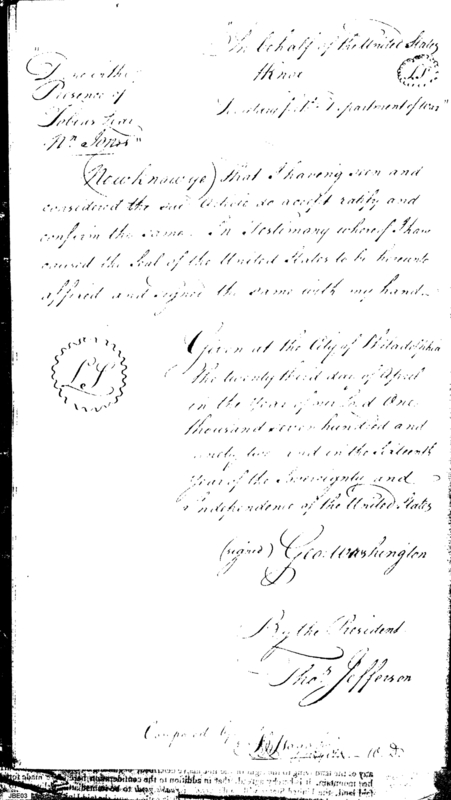 In behalf of the United States
"Done in the
HKnox
L.S.
Presence of
Secretary for the Department of War"
Tobias Lear
Nn Jones"
(Now know ye) That I having seen and
considered the said Article do accept ratify and
confirm the same. In Testimony whereof I have
caused the Seal of the United States to be hereunto
affixed and signed the same with my hand.
LS
Given at the City of Philadelphia
the twenty third day of April
in the Year of our Lord One
thousand seven hundred and
ninety two and in the Sixteenth
Year of the Sovereignty and
Independence of the United States
(signed) Geo: Washington
By the President
Thos. Jefferson
Compared by
JBE03